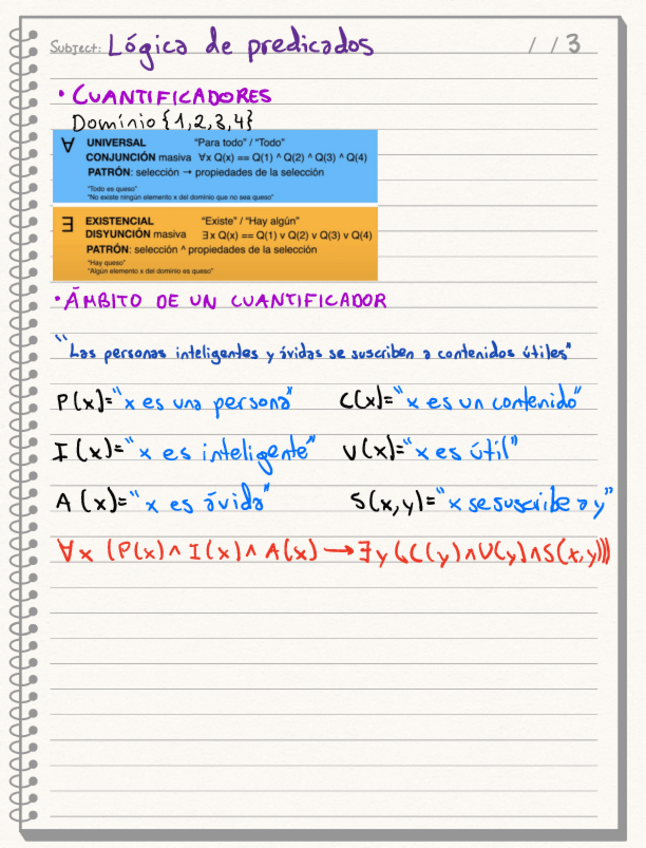 Subject: Lógica de predicados / / 3
• CUANTIFICADORES
Domínio {1,2,3,4}
∀ UNIVERSAL "Para todo" / "Todo"
CONJUNCIÓN masiva ∀x Q(x) == Q(1) ^ Q(2) ^ Q(3) ^ Q(4)
PATRÓN: selección → propiedades de la selección
"Todo es queso"
"No existe ningún elemento x del dominio que no sea queso"
∃ EXISTENCIAL "Existe" / "Hay algún"
DISYUNCIÓN masiva ∃x Q(x) == Q(1) v Q(2) v Q(3) v Q(4)
PATRÓN: selección ^ propiedades de la selección
"Hay queso"
"Algún elemento x del dominio es queso"
• ÁMBITO DE UN CUANTIFICADOR
"Las personas inteligentes y ávidas se suscriben a contenidos útiles"
P(x)="x es una persona" C(x)="x es un contenido"
I(x)="x es inteligente" U(x)="x es útil"
A(x)="x es ávida" S(x,y)="x se suscribe a y"
∀x (P(x)∧I(x)∧A(x)→∃y((C(y)∧U(y)∧S(x,y)))